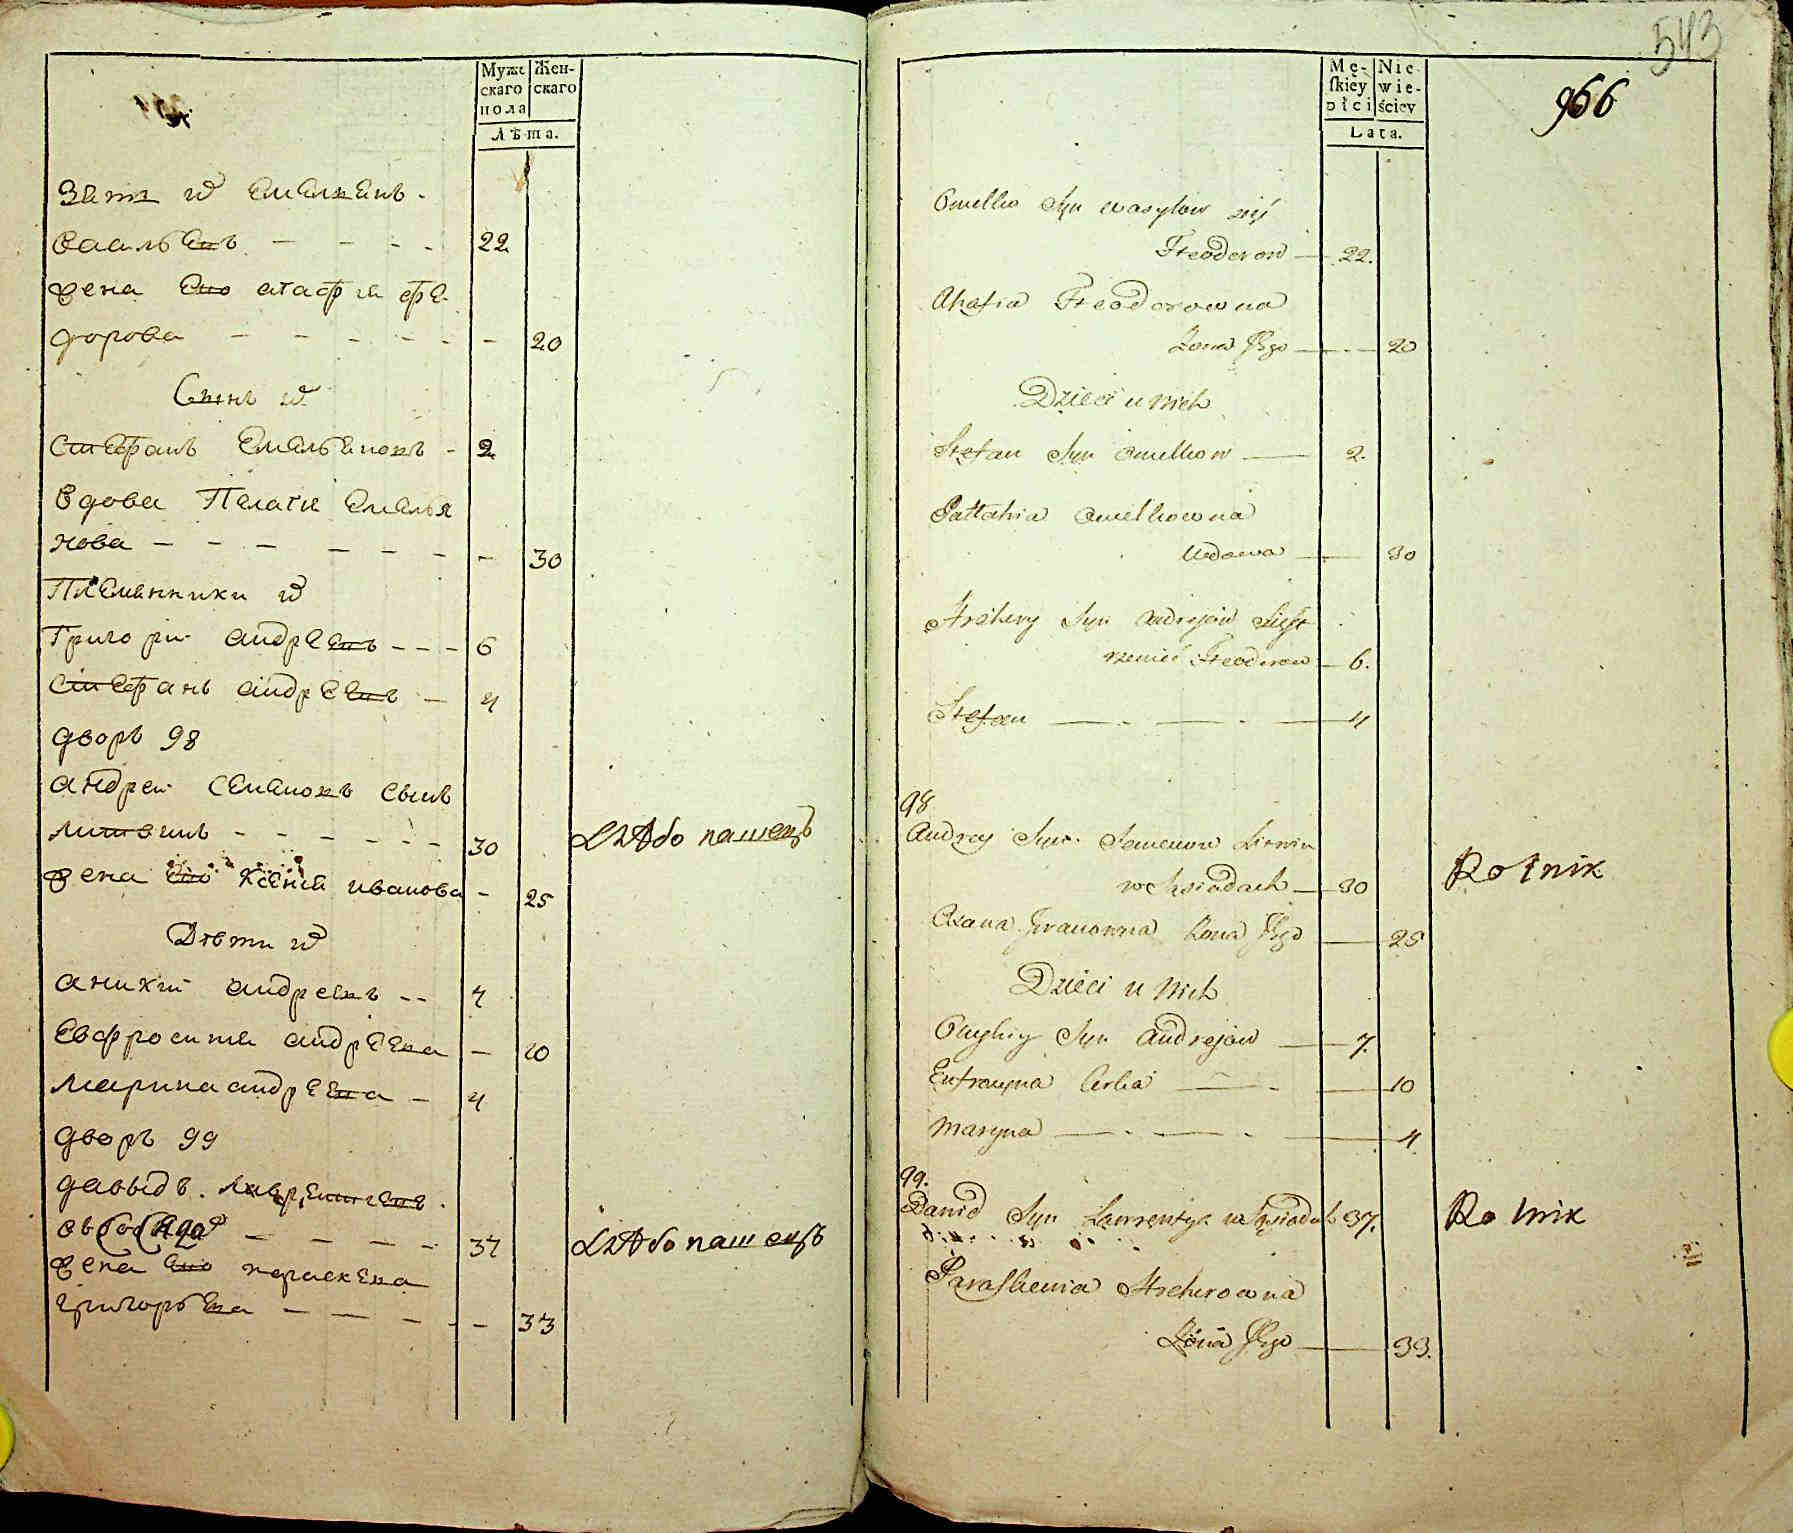 Муж-
скаго
пола
Жен-
скаго
Лѣта.
Зять и᷍ Емелянъ
22
жена ево агафия фе
дорова - - - - - - 20
Сынъ и᷍
стефанъ Емельяновъ - 2
вдова Пелагея Емелья
нова - - - - - - - 30
Племянники и᷍
Григори андреевъ - - - 6
стефанъ андреевъ - 4
дворъ 98
андреи семеновъ сынъ
литвинъ - - - - - - 30
хлѣбопашецъ
жена ево ксения иванова - 25
Дѣти и᷍
аникии андреевъ - - 7
Евфросиния андреева - 10
марина андреева - 4
дворъ 99
давыдъ лаврентиевъ
37
хлѣбопашецъ
жена ево параскева
григорьева - - - - - 33
543
966
Mę-
skiey
płci
Nie-
wie-
ściey
Lata.
Omelko Syn wasylow zięć
Fteodorow — 22.
Ahafia Fteodorowna
Zona Jego — 20
Dzieci u Nich
Stefan Syn omelkow — 2.
Pallahia omelkowna
Wdowa — 30
Hrehory Syn Andrejow Siest
rzeniec Fteodorow — 6.
Stefan — 4
98
Andrey Syn Semenow Litwin
w Sąsiadach — 30
Rolnik
Oxana Iwanowna Zona Jego — 25
Dzieci u Nich
Onyhiy Syn Andrejow — 7.
Eufrozyna Corka — 10
Maryna — 4
99.
Dawid Syn Lawrentya w Sąsiadach 37.
Rolnik
Paraskewia Hrehorowna
Zona Jego — 33.